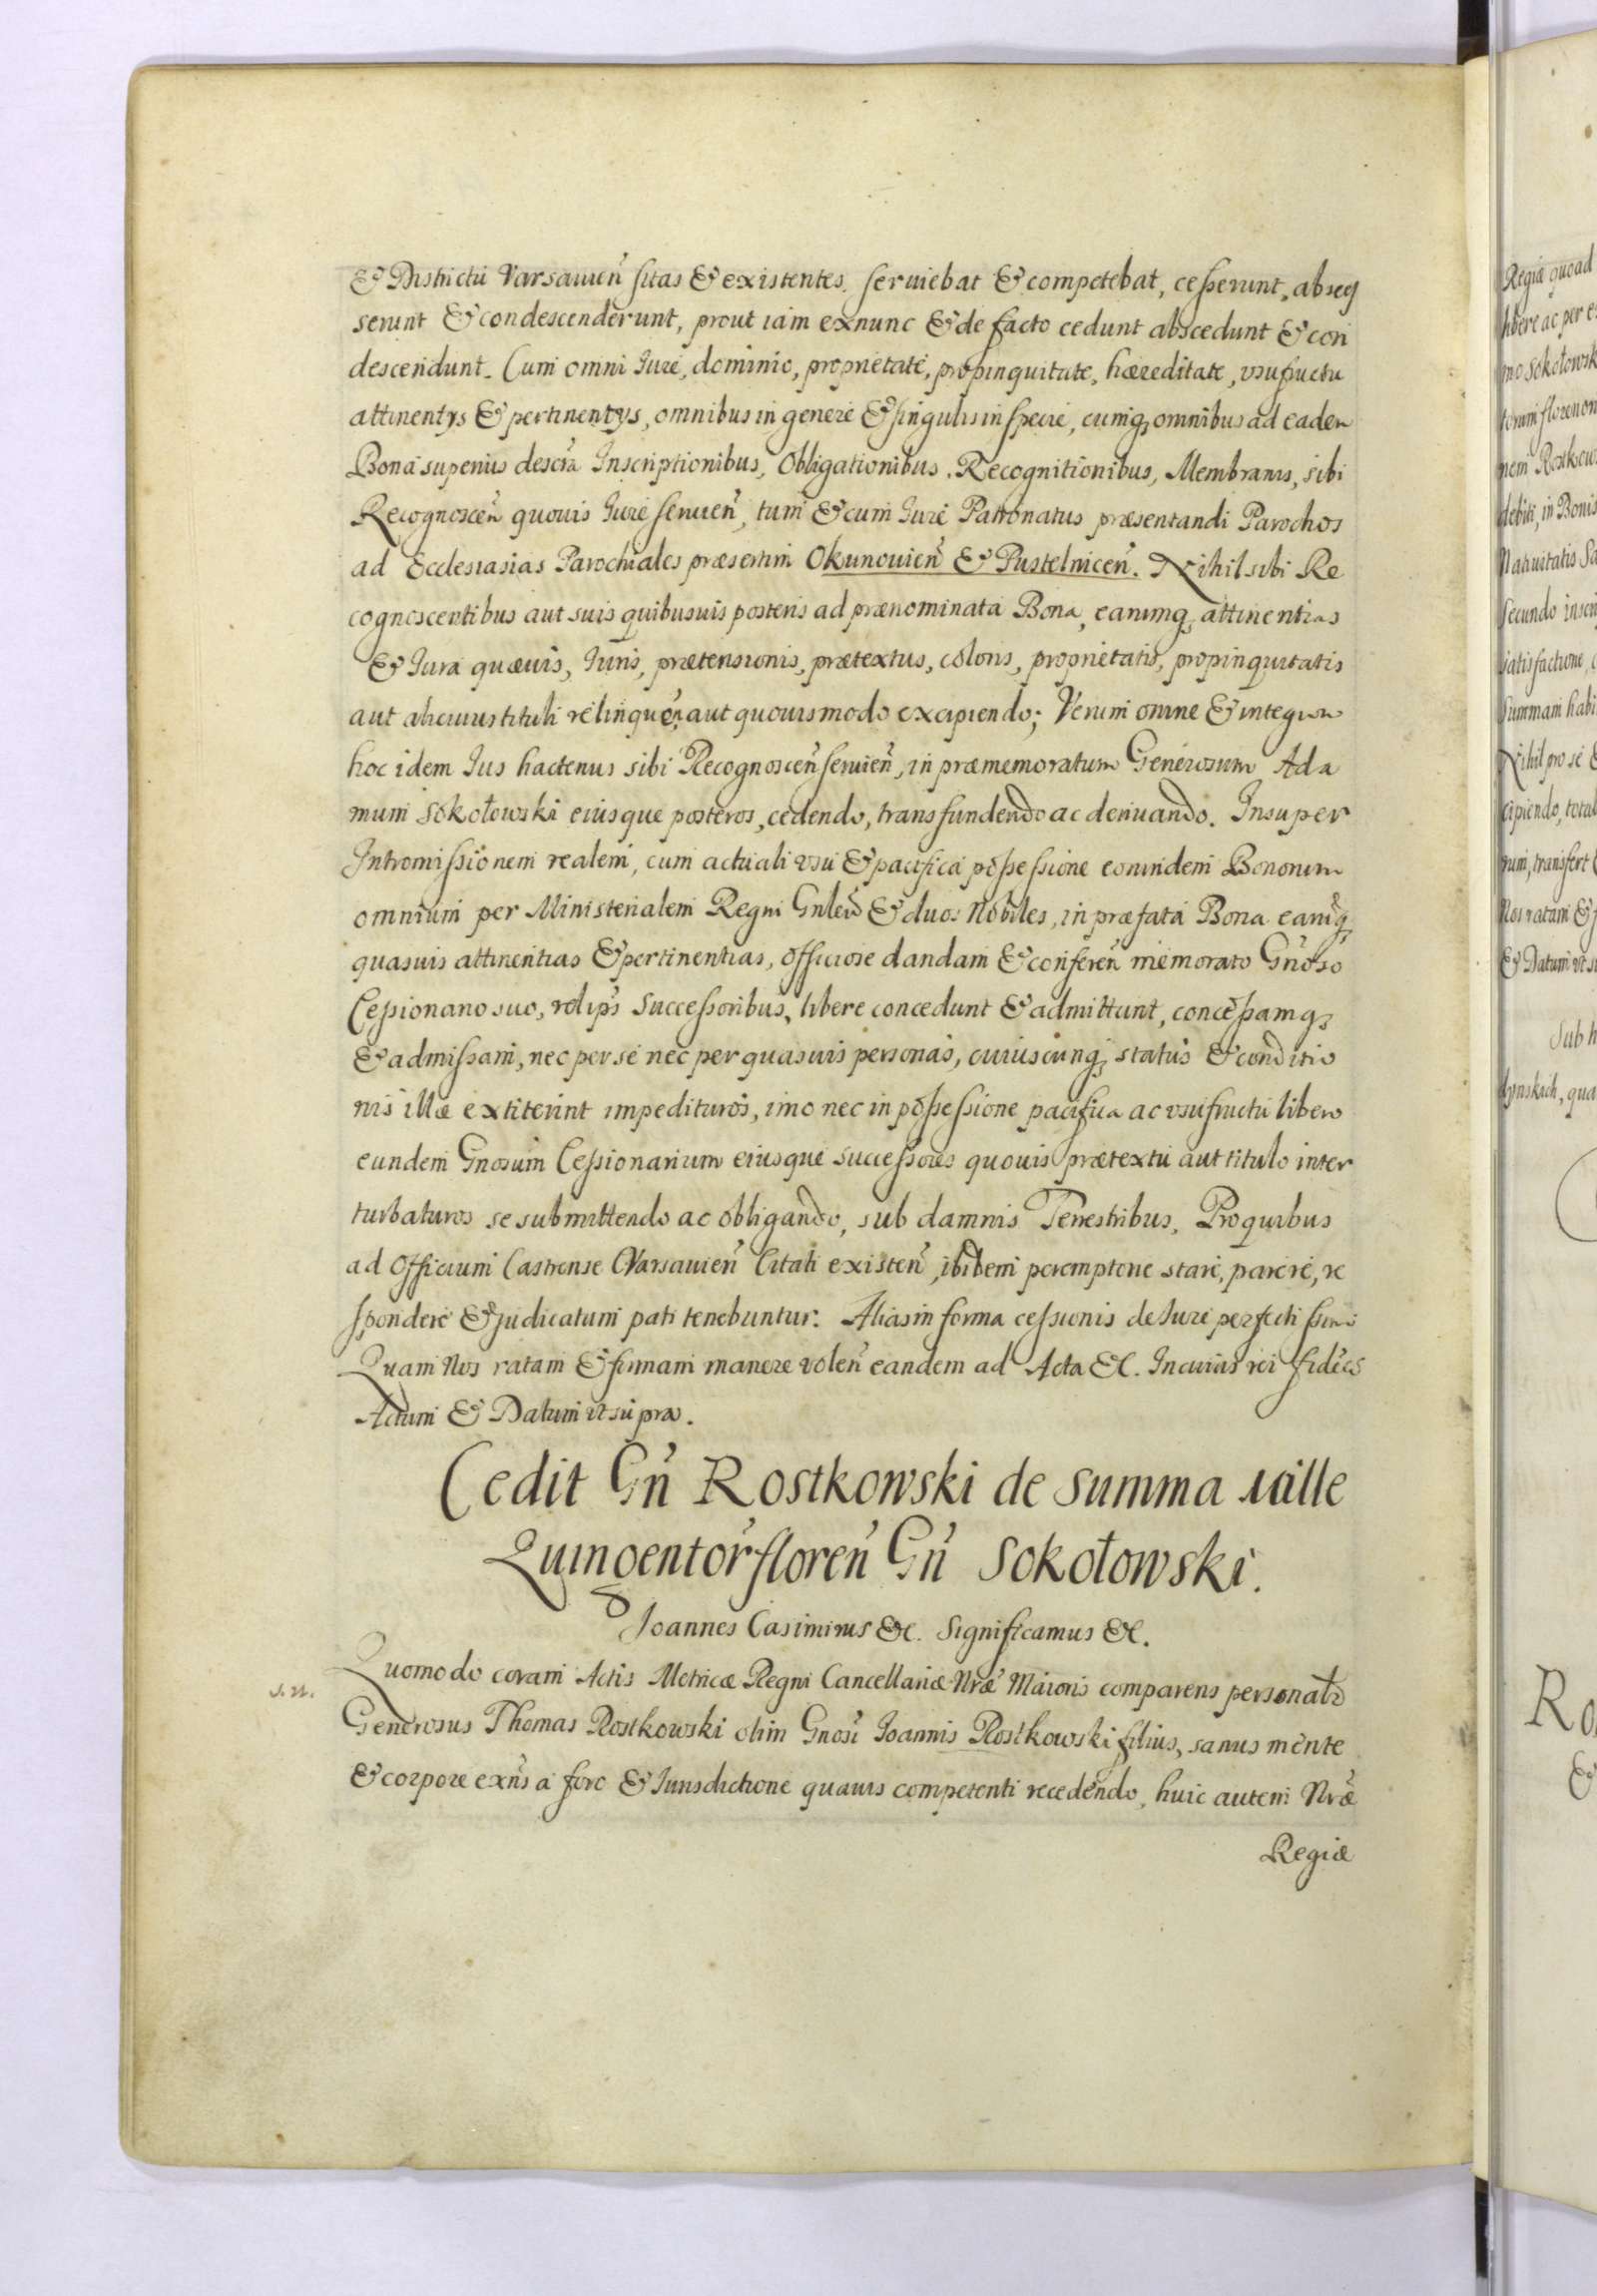 & Districtu Varsauien̄ sitas & existentes. seruiebat & competebat, cesserunt, absces
serunt & condescenderunt, prout iam exnunc & de facto cedunt abscedunt & con
descendunt. Cum omni Iure, dominio, proprietate, propinquitate, hæreditate, vsufructu
attinentys & pertinentys, omnibus in genere & singulis in specie, cumq; omnibus ad eadem
Bona superius descr̄a Inscriptionibus, Obligationibus. Recognitionibus, Membranis, sibi
Recognoscen̄ quouis Iure seruien̄, tum & cum Iure Patronatus præsentandi Parochos
ad Ecclesiasias Parochiales præsertim Okunouien̄ & Pustelnicen̄. Nihil sibi Re
cognoscentibus aut suis quibusuis posteris ad prænominata Bona, earumq; attinentias
& Iura quæuis, Iuris, prætensionis, prætextus, coloris, proprietatis, propinquitatis
aut alicuius tituli relinquen̄, aut quouismodo excipiendo; Verum omne & integrum
hoc idem Ius hactenus sibi Recognoscen̄ seruien̄, in præmemoratum Generosum Ada
mum Sokołowski eiusque posteros, cedendo, transfundendo ac deriuando. Insuper
Intromissionem realem, cum actuali vsu & pacifica possessione eorundem Bonorum
omnium per Ministerialem Regni Gnlem̄ & duos Nobiles, in præfata Bona earūq;
quasuis attinentias & pertinentias, officiose dandam & conferen̄ memorato Gn̄oso
Cessionario suo, vel ip̄s Successoribus, libere concedunt & admittunt, concessamq;
& admissam, nec per se nec per quasuis personas, cuiuscunq; status & conditio
nis illæ extiterint impedituros, imo nec in possessione pacifica ac vsufructu libero
eundem Gnosum Cessionarium eiusque successores quouis prætextu aut titulo inter
turbaturos se submittendo ac obligando, sub damnis Terrestribus. Pro quibus
ad Officium Castrense Varsauien̄ Citati existen̄, ibidem peremptorie stare, parere, re
spondere & judicatum pati tenebuntur. Alias in forma cessionis de Iure perfectissima
Quam Nos ratam & firmam manere volen̄ eandem ad Acta &c. In cuius rei fidēs
Actum & Datum vt supra.
Cedit Gn̄ Rostkowski de Summa Mille
Quingentor̄ floren̄ Gn̄ Sokołowski.
Joannes Casimirus &c. Significamus &c.
Quomodo coram Actis Metricæ Regni Cancellariæ Nr̄æ Maioris comparens personalr̄
Generosus Thomas Rostkowski olim Gnosi Joannis Rostkowski filius, sanus mente
& corpore exn̄s a foro & Iurisdictione quauis competenti recedendo, huic autem Nr̄æ
Regiæ